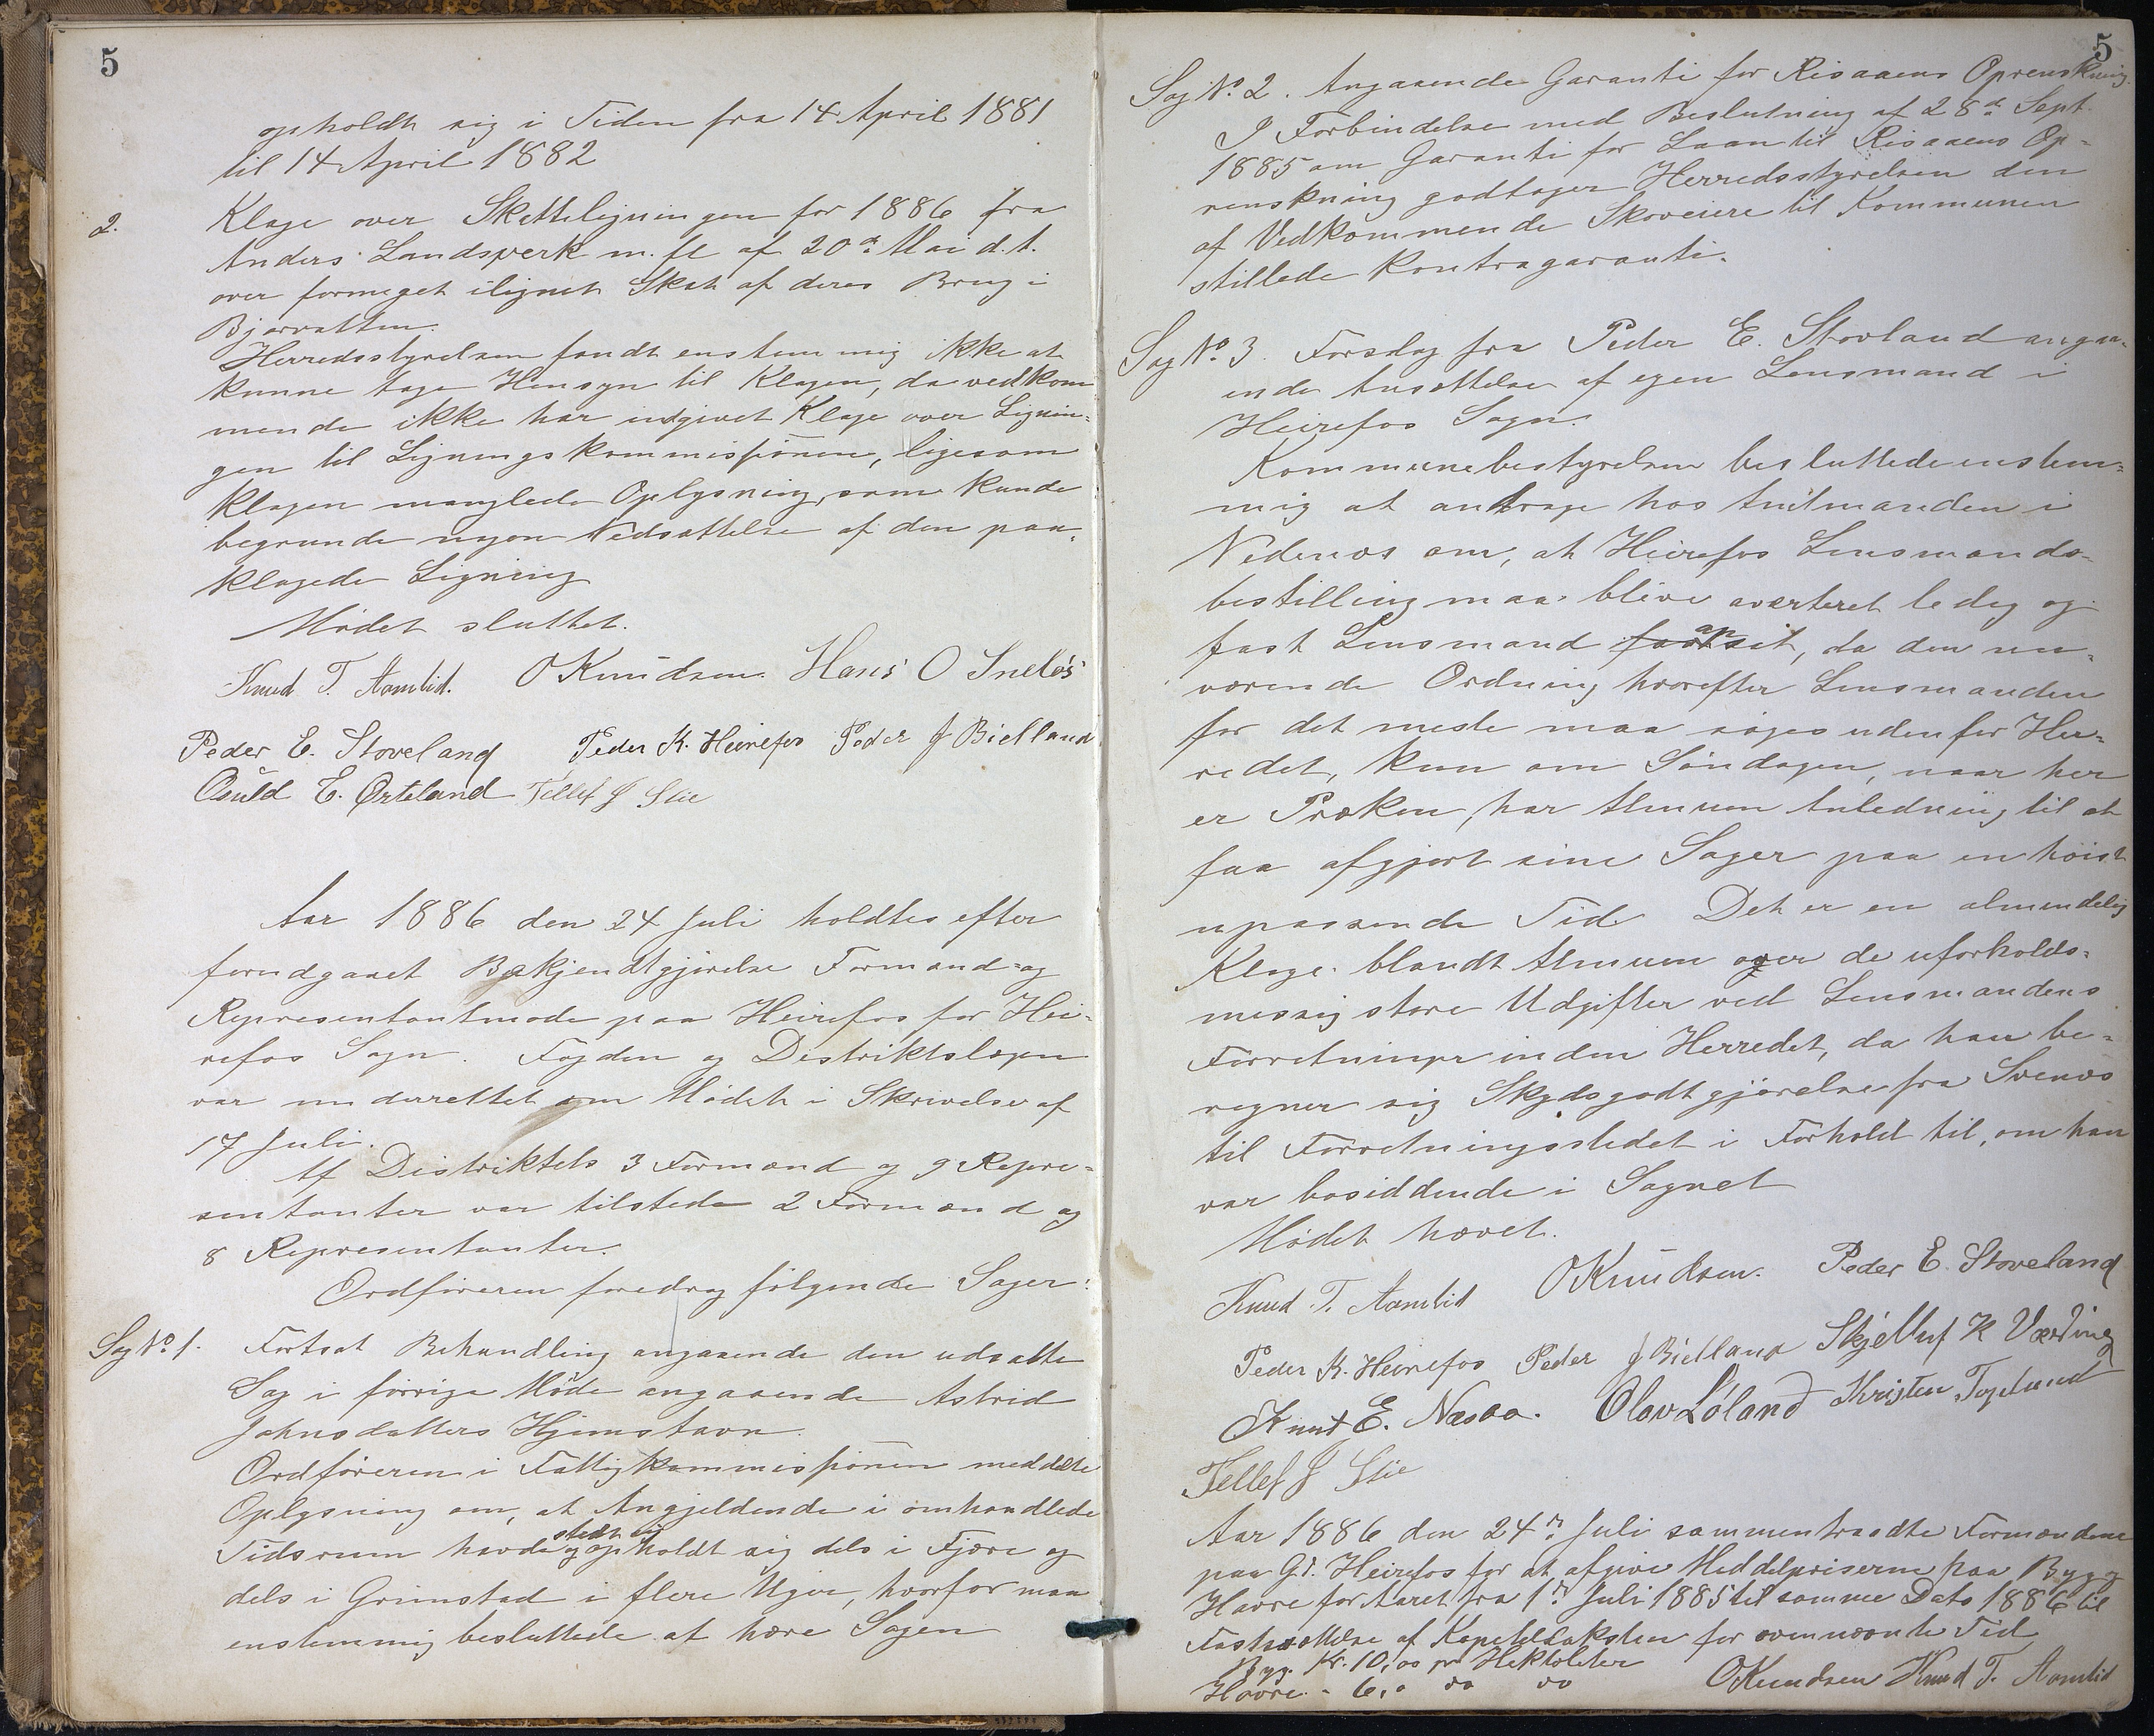 5
opholdt sig i Tiden fra 14 April 1881
til 14 April 1882
2.
Klage over Skatteligningen for 1886 fra
Anders Landsverk m. fl af 20de Mai d. A.
over formeget ilignet Skat af deres Brug i
Bjorvatten.
Herredsstyrelsen fandt enstemmig ikke at
kunne tage Hensyn til Klagen, da vedkom
mende ikke har indgivet Klage over Lignin=
gen til Ligningskommissionen, ligesom
Klagen manglede Oplysning, som kunde
begrunde nogen Nedsættelse af den paa=
klagede Ligning
Mødet sluttet.
Knud T. Aamlid. O Knudsen. Hans O Sneløs
Peder E. Stoveland Peder K. Heirefos Peder J Bielland
Osuld E. Ørteland Tellef J Slie
Aar 1886 den 24 Juli holdtes efter
forudgaaet Bekjendtgjørelse Formand= og
Representantmøde paa Heirefos for Hei=
refos Sogn. Fogden og Distriktslægen
var underrettet om Mødet i Skrivelse af
17 Juli.
Af Distriktets 3 Formænd og 9 Repre=
sentanter var tilstede 2 Formænd og
8 Representanter.
Ordføreren foredrog følgende Sager:
Sag No. 1. Fortsat Behandling angaaende den udsatte
Sag i forrige Møde angaaende Astrid
Johnsdatters Hjemstavn.
Ordføreren i Fattigkommissionen meddelte
Oplysning om, at Angjeldende i omhandlede
stedt sig
Tidsrum havde og opholdt sig dels i Fjære og
dels i Grimstad i flere Uger, hvorfor man
enstemmig besluttede at hæve Sagen
5
Sag No. 2. Angaaende Garanti for Risaaens Oprenskning.
I Forbindelse med Beslutning af 28de Sept.
1885 om Garanti for Laan til Risaaens Op=
renskning godtager Herredsstyrelsen den
af Vedkommende Skoveiere til Kommunen
stillede Kontragaranti.
Sag No. 3. Forslag fra Peder E. Stovland angaa=
ende Ansættelse af egen Lensmand i
Heirefos Sogn.
Kommunebestyrelsen besluttede enstem=
mig at andrage hos Amtmanden i
Nedenæs om, at Heirefos Lensmands=
bestilling maa blive averteret ledig og
an
fast Lensmand forsat, da den nu=
værende Ordning, hvorefter Lensmanden
for det meste maa søges udenfor Her=
redet, kun om Søndagen, naar her
er Præken, har Almuen Anledning til at
faa afgjort sine Sager paa en høist
upassende Tid. Det er en almendelig
Klage blandt Almuen over de uforholds=
mæssig store Udgifter ved Lensmandens
Forretninger inden Herredet, da han be=
regner sig Skydsgodtgjørelse fra Svenæs
til Forretningsstedet i Forhold til, om han
var bosiddende i Sognet
Mødet hævet.
Knud T. Aamlid O Knudsen. Peder E. Stoveland
Peder K. Heirefos Peder J Bielland Skjelluf K Væding
Knut E. Næsaa. Olav Løland Kristen Topelund
Tellef J Slie
Aar 1886 den 24de Juli sammentraadte Formændene
paa Gd. Heirefos for at afgive Meddelpriserne paa Byg og
Havre for Aaret fra 1ste Juli 1885 til samme Dato 1886 til
Fastsættelse af Kapiteltaksten for ovennævnte Tid
Byg. Kr. 10,00 pr Hektoliter
Havre. - 6,0 do do O Knudsen Knud T. Aamlid